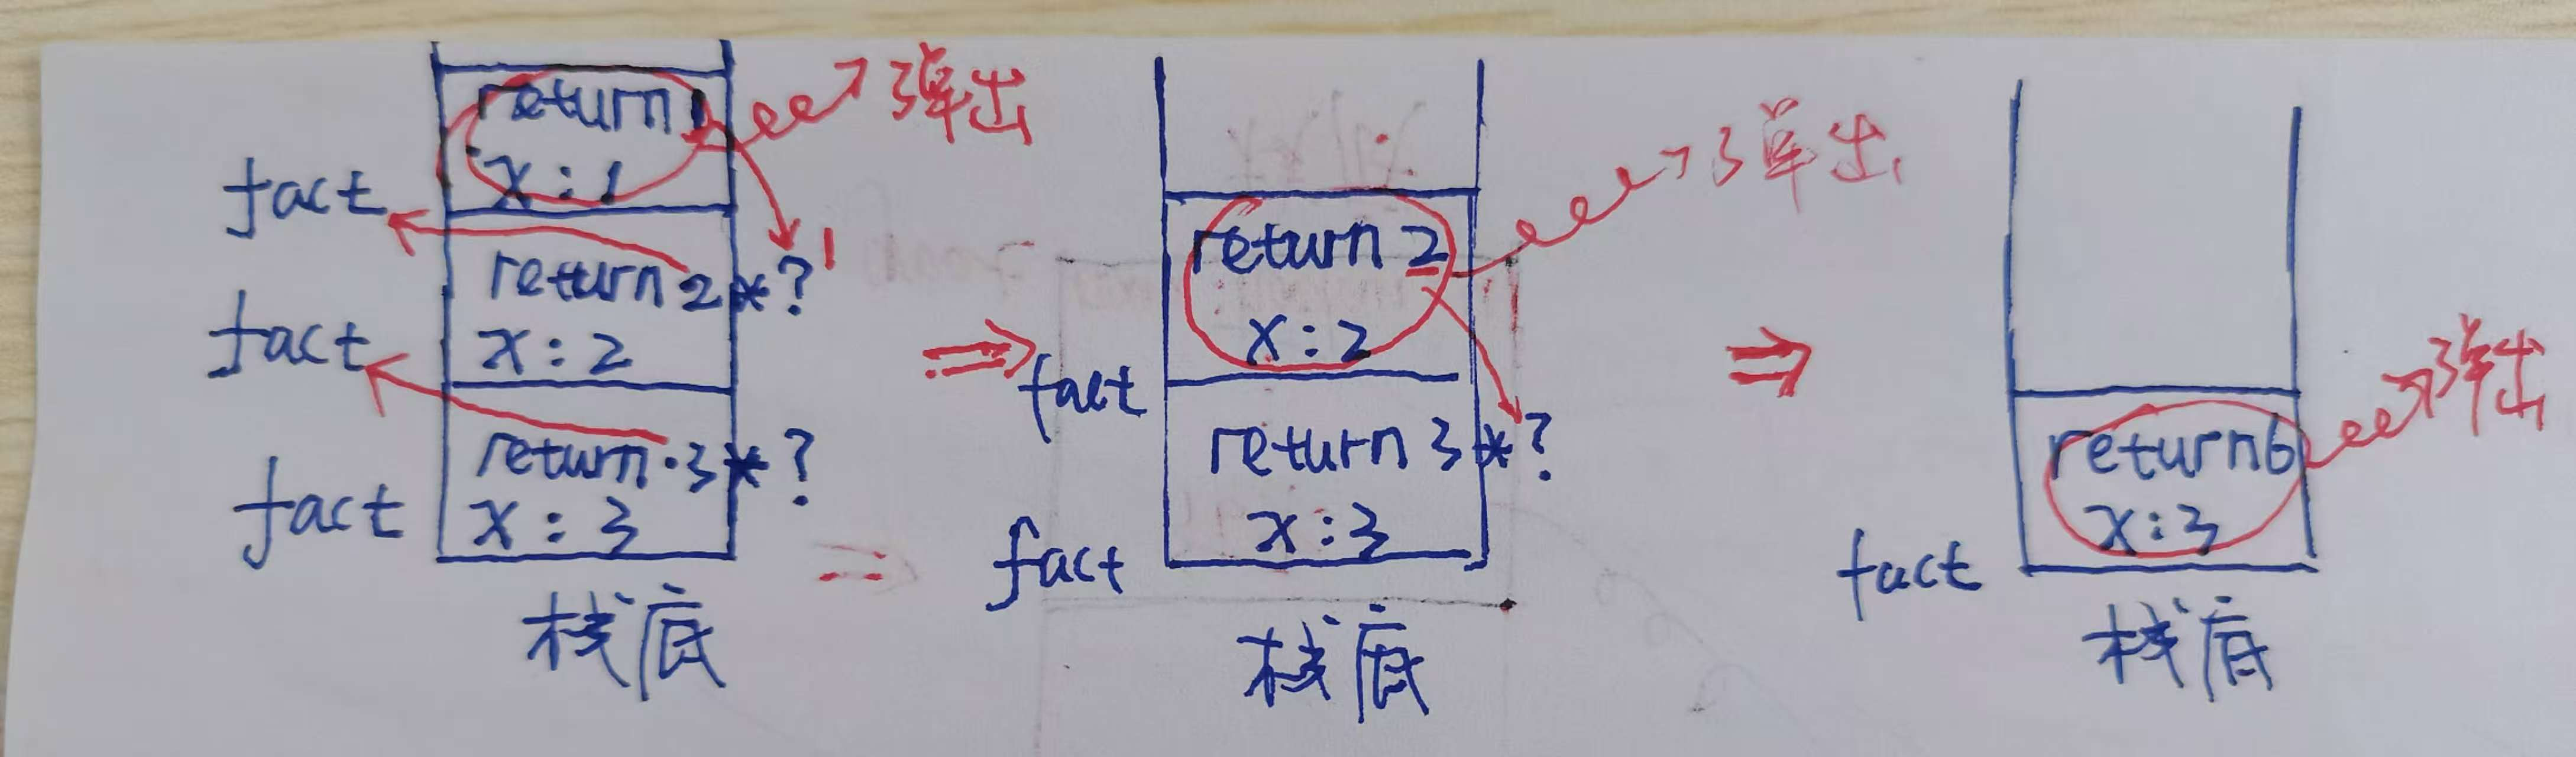 return 1
弹出
x:1
fact
return 2*? 1
x:2
fact
return 3*?
x:3
fact
栈底
return 2
弹出
x:2
fact
return 3*?
x:3
fact
栈底
return 6
弹出
x:3
fact
栈底